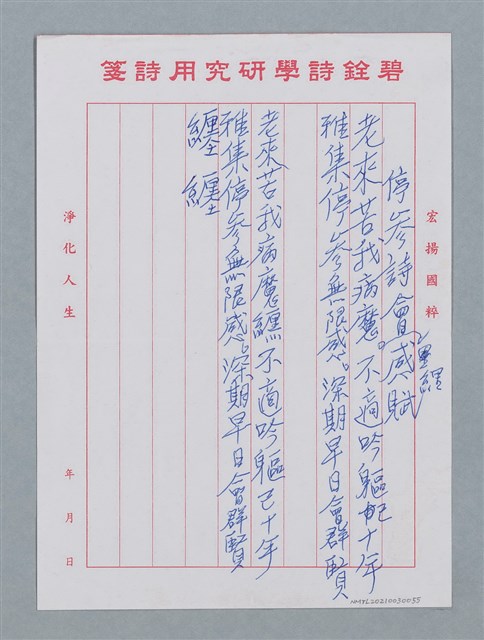 碧銓詩學研究用詩箋
宏揚國粹
停參詩會感賦
老來苦我病魔。不適吟軀 十年
雅集停參無限感。深期早日會群賢
老來苦我病魔纏不適吟軀已十年
雅集停參無限感。深期早日會群賢
纏纏
淨化人生
年月日
NMTL20210030055